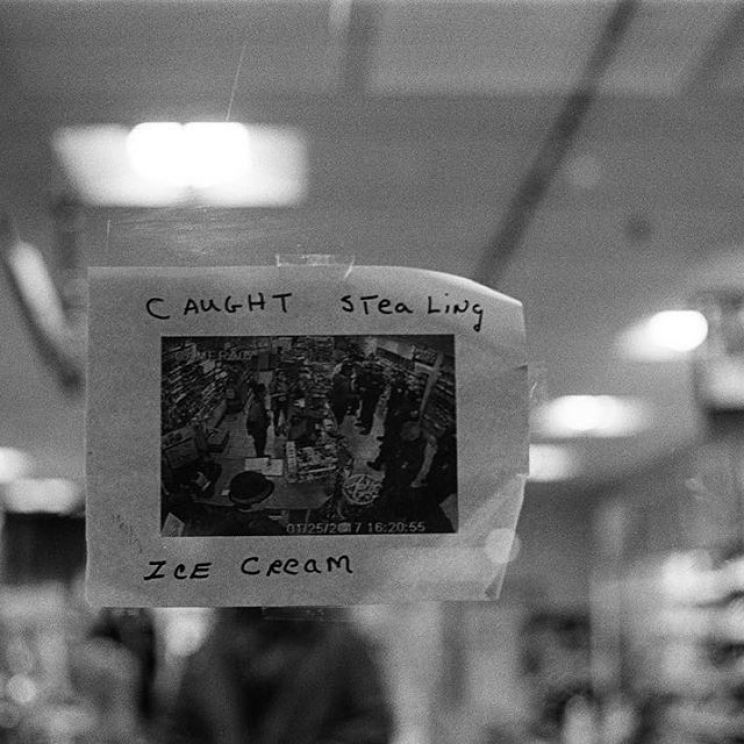 CAUGHT STeaLiNg
CAMERA
01/25/2017 16:20:55
ICE CReaM